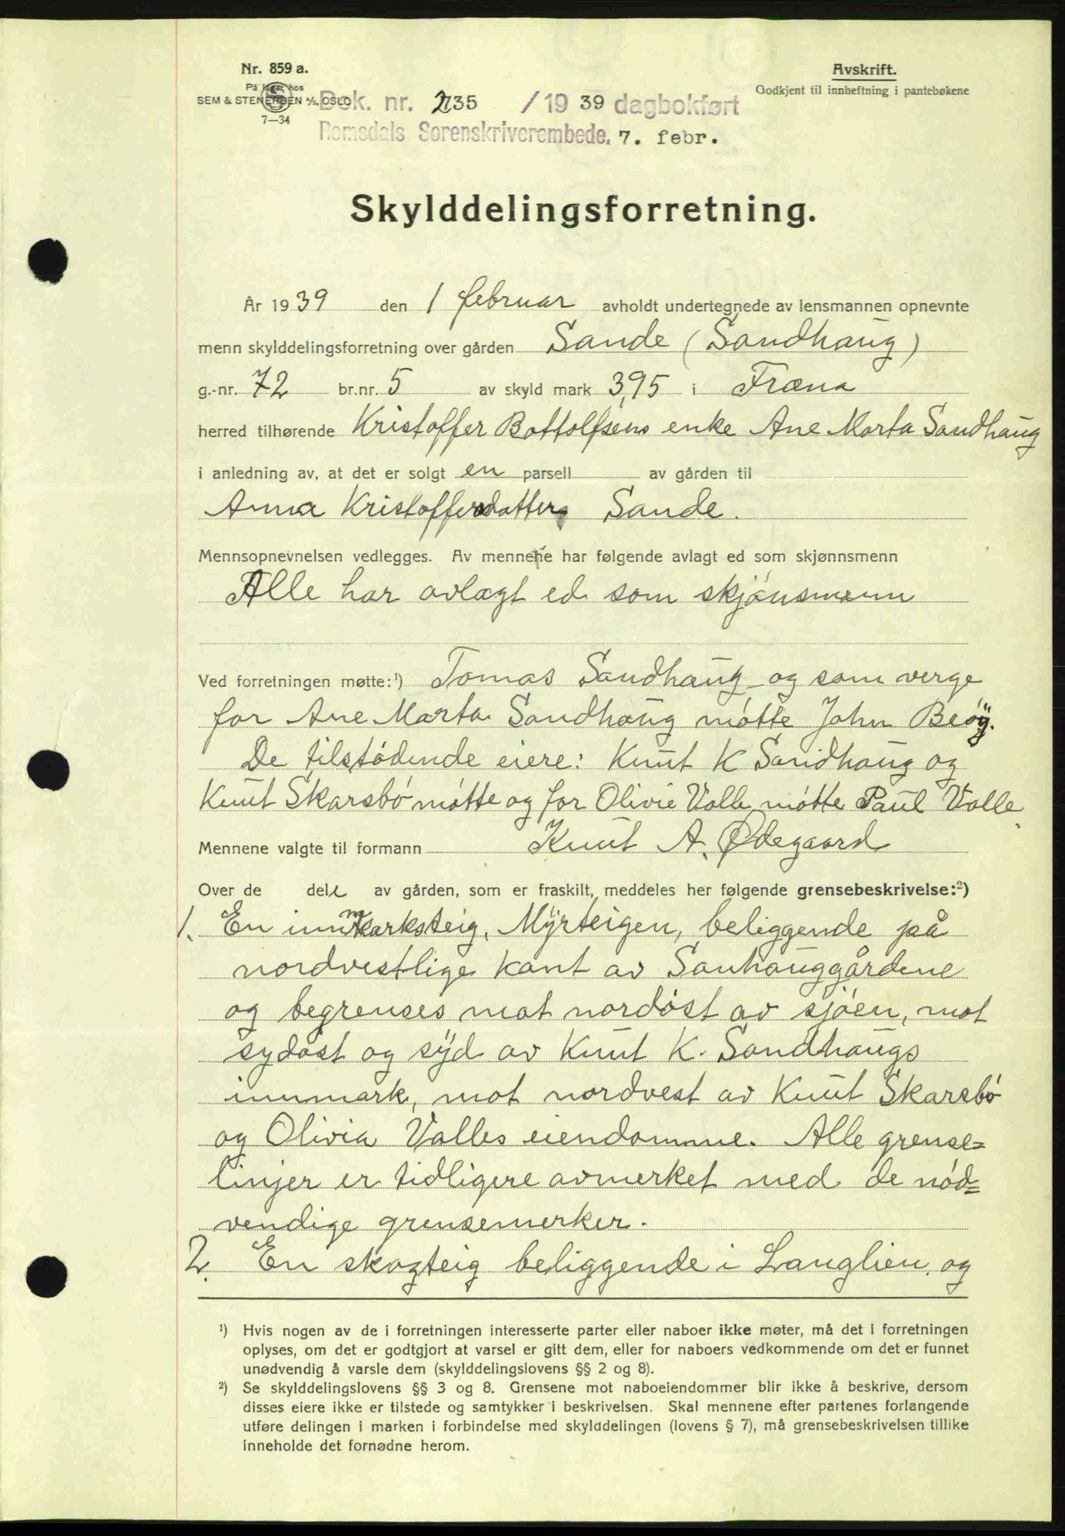 Nr. 859 a.
På lager hos
SEM & STENERSEN A/S, OSLO
7—34
Avskrift.
Godkjent til innheftning i pantebøkene
Dok. nr. 235 / 19 39 dagbokført
Romsdals Sorenskriverembede. 7. febr.
Skylddelingsforretning.
År 1939 den 1 februar avholdt undertegnede av lensmannen opnevnte
menn skylddelingsforretning over gården Sande (Sandhaug)
g.-nr. 72 br.nr. 5 av skyld mark 3,95 i Fræna
herred tilhørende Kristoffer Bottolfsens enke Ane Marta Sandhaug
i anledning av, at det er solgt en parsell av gården til
Anna Kristoffersdatter Sande.
Mennsopnevnelsen vedlegges. Av mennene har følgende avlagt ed som skjønnsmenn
Alle har avlagt ed som skjønsmenn
Ved forretningen møtte:¹) Tomas Sandhaug og som verge
for Ane Marta Sandhaug møtte John Beøy.
De tilstødende eiere: Knut K Sandhaug og
Knut Skarsbø møtte og for Olivie Valle møtte Paul Valle.
Mennene valgte til formann Knut A. Ødegaard
Over de dele av gården, som er fraskilt, meddeles her følgende grensebeskrivelse:²)
1. En innmarksteig, Myrteigen, beliggende på
nordvestlige kant av Sanhauggårdene
og begrenses mot nordøst av sjøen, mot
sydøst og syd av Knut K. Sandhaugs
innmark, mot nordvest av Knut Skarsbø
og Olivia Valles eiendomme. Alle grense=
linjer er tidligere avmerket med de nød=
vendige grensemerker.
2. En skogteig beliggende i Langlien, og
¹) Hvis nogen av de i forretningen interesserte parter eller naboer ikke møter, må det i forretningen
oplyses, om det er godtgjort at varsel er gitt dem, eller for naboers vedkommende om det er funnet
unødvendig å varsle dem (skylddelingslovens §§ 2 og 8).
²) Se skylddelingslovens §§ 3 og 8. Grensene mot naboeiendommer blir ikke å beskrive, dersom
disses eiere ikke er tilstede og samtykker i beskrivelsen. Skal mennene efter partenes forlangende
utføre delingen i marken i forbindelse med skylddelingen (lovens § 7), må grensebeskrivelsen tillike
inneholde det fornødne herom.